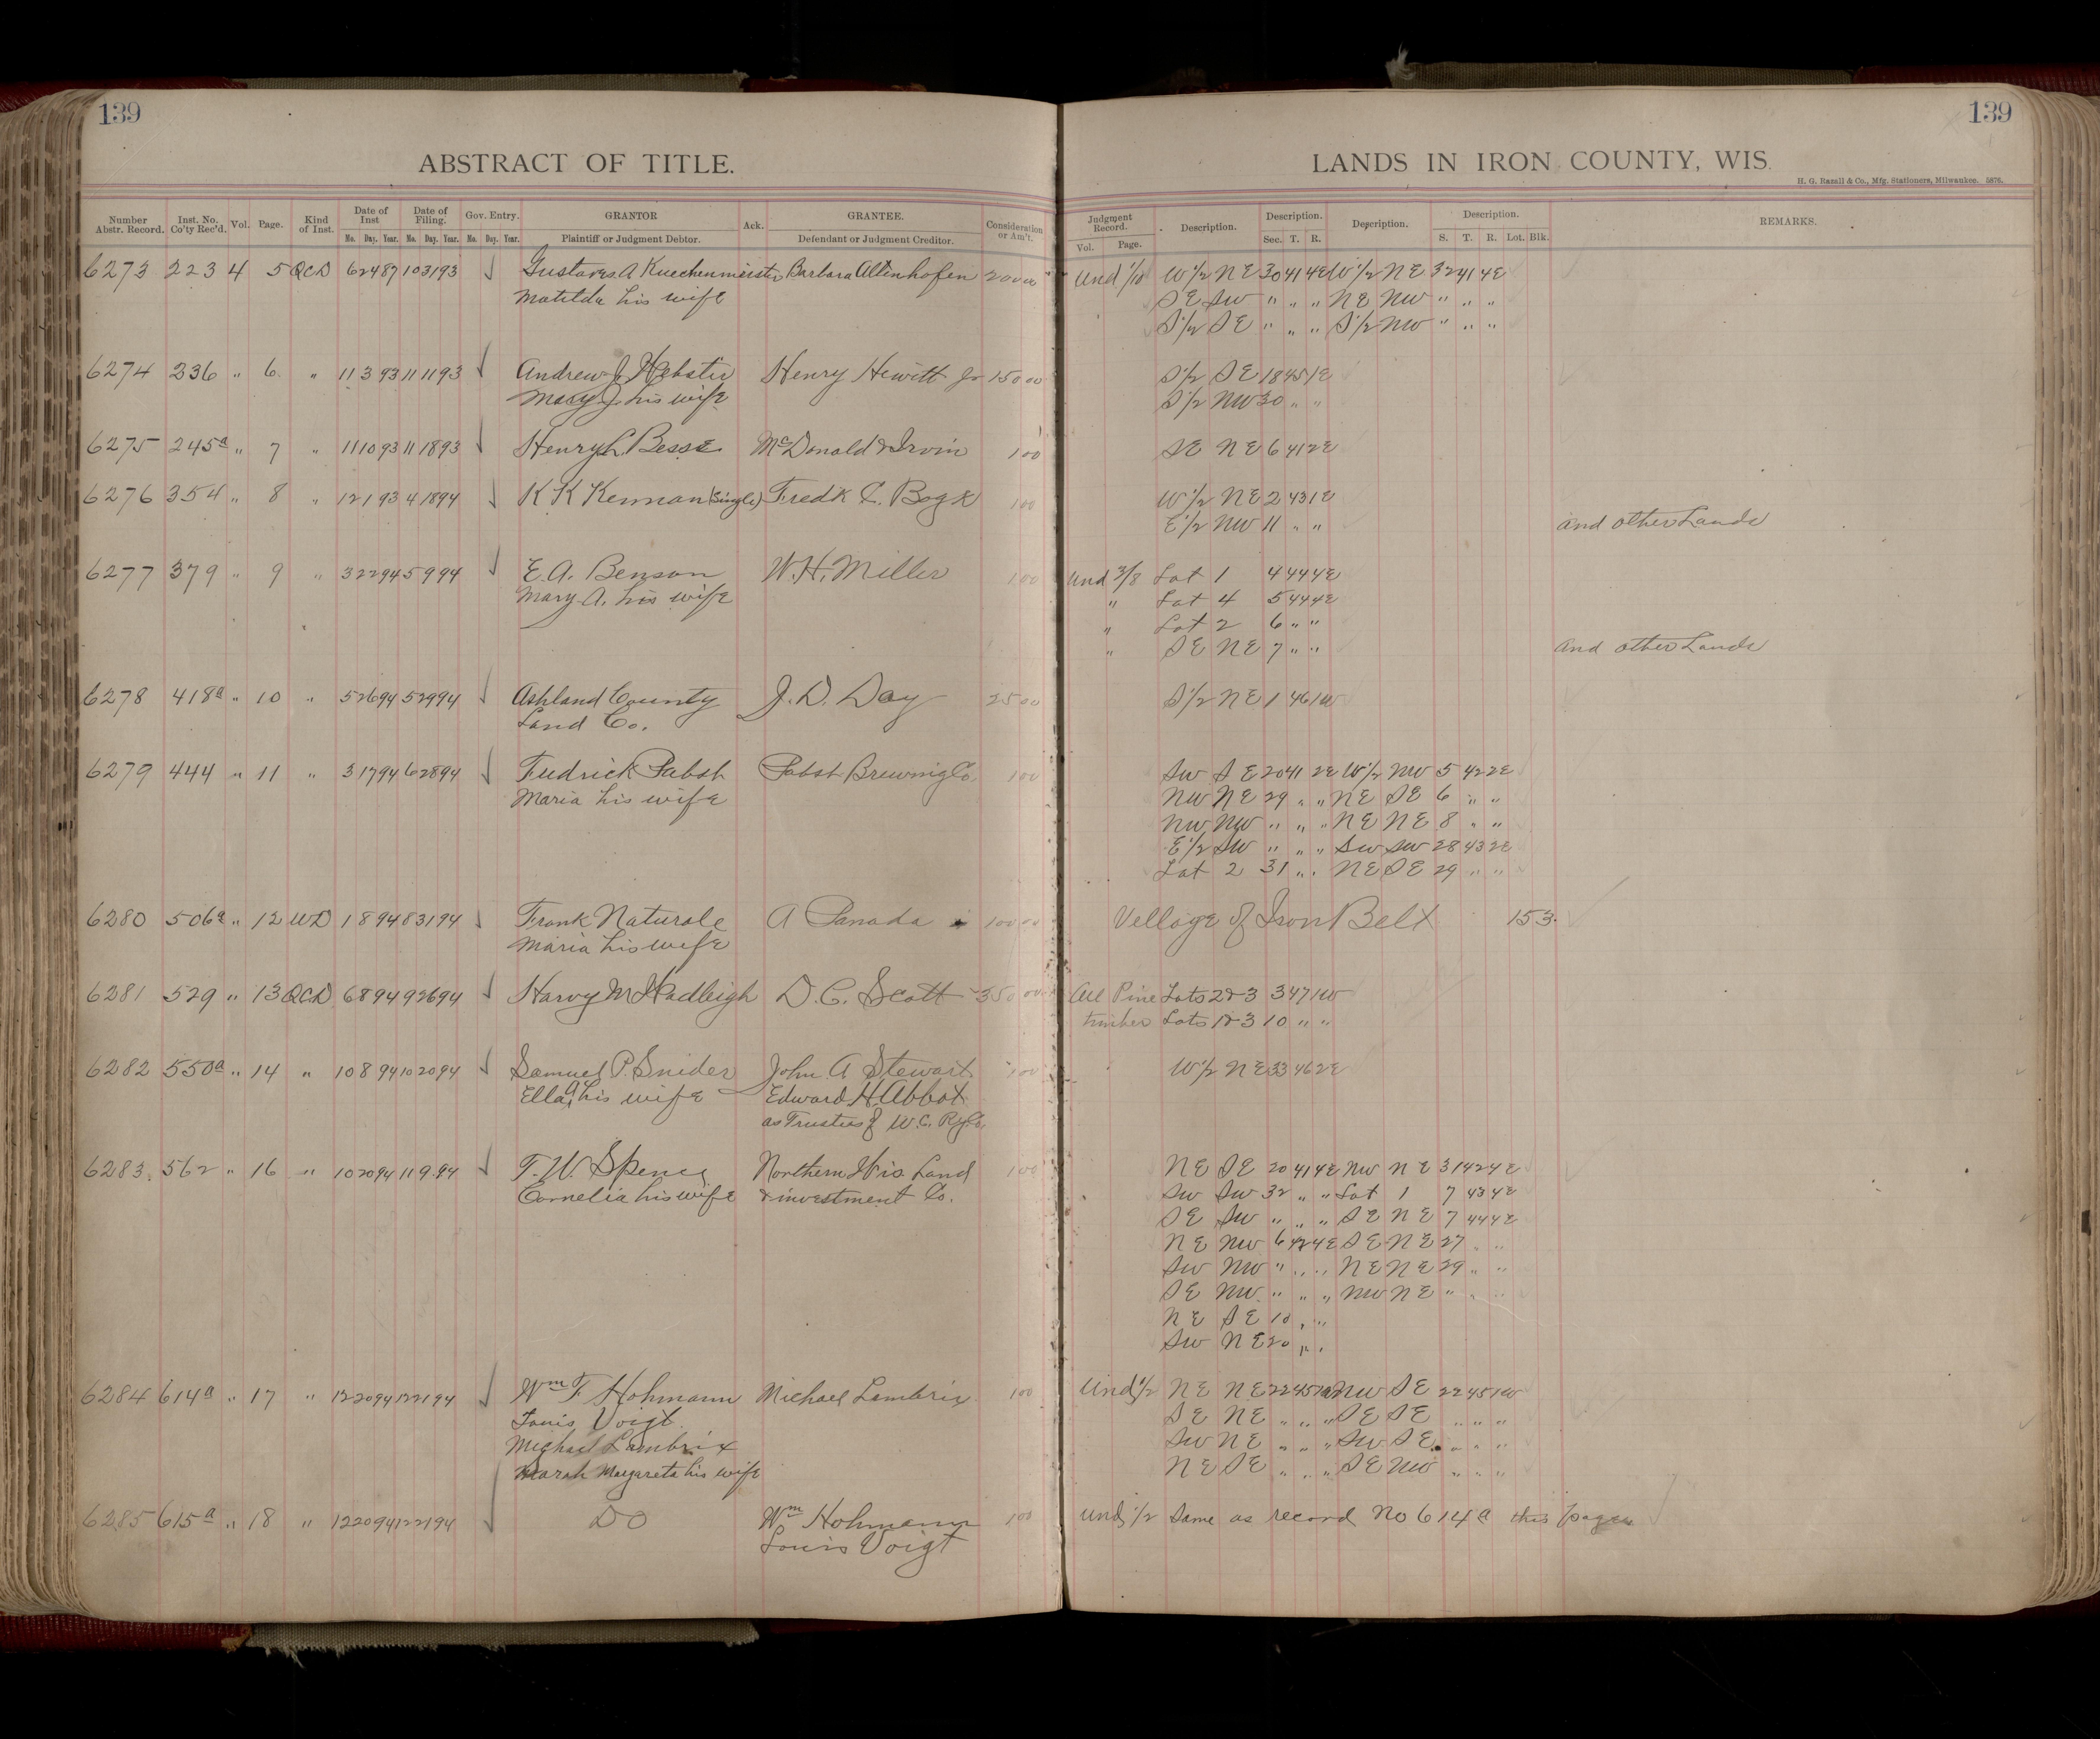 139
139
ABSTRACT OF TITLE.
LANDS IN IRON COUNTY, WIS.
H. G. Razall & Co., Mfg. Stationers, Milwaukee. 5876.
Number Abstr. Record. Inst. No. Co'ty Rec'd. Vol. Page. Kind of Inst. Date of Inst Mo. Day. Year. Date of Filing. Mo. Day. Year. Gov. Entry. Mo. Day. Year. GRANTOR Plaintiff or Judgment Debtor. Ack. GRANTEE. Defendant or Judgment Creditor. Consideration or Am't. Judgment Record. Vol. Page. Description. Description. Sec. T. R. Description. Description. S. T. R. Lot. Blk. REMARKS.
6273 223 4 5 QCD 6 24 87 10 31 93 Gustavus A Kuechenmeister Barbara Altenhofen 2000 Und 1/10 W 1/2 NE 30 41 4E W 1/2 NE 32 41 4E
Matilda his wife SE SW " " " NE NW " " "
S 1/2 SE " " " S 1/2 NW " " "
6274 236 " 6 " 11 3 93 11 11 93 Andrew J Webster Henry Hewitt Jr 150 00 S 1/2 SE 18 45 1E
Mary J his wife S 1/2 NW 30 " "
6275 245a " 7 " 11 10 93 11 18 93 Henry L. Besse McDonald & Irvin 1 00 SE NE 6 41 2E
6276 354 " 8 " 12 1 93 4 18 94 K K Kennan (Single) Fredk C. Bogk 1 00 W 1/2 NE 2 43 1E
E 1/2 NW 11 " " and other Lands
6277 379 " 9 " 3 22 94 5 9 94 E. A. Benson W. H. Miller 1 00 Und 3/8 Lot 1 4 44 4E
Mary A. his wife " Lot 4 5 44 4E
" Lot 2 6 " "
" SE NE 7 " " and other Lands
6278 418a " 10 " 5 26 94 5 29 94 Ashland County J. D. Day 25 00 S 1/2 NE 1 46 1W
Land Co.
6279 444 " 11 " 3 17 94 6 28 94 Fredrick Pabst Pabst Brewing Co. 1 00 SW SE 20 41 2E W 1/2 NW 5 42 2E
Maria his wife NW NE 29 " " NE SE 6 " "
NW NW " " " NE NE 8 " "
E 1/2 SW " " " SW SW 28 43 2E
Lot 2 31 " " NE SE 29 " "
6280 506a " 12 WD 1 8 94 8 31 94 Frank Naturale A Panada 100 00 Village of Iron Belt 153
Maria his wife
6281 529 " 13 QCD 6 8 94 9 26 94 Harvy M Hadleigh D. C. Scott 350 00 All Pine Lots 2&3 3 47 1W
timber Lots 1&3 10 " "
6282 550a " 14 " 10 8 94 10 20 94 Samuel P. Snider John A Stewart 1 00 W 1/2 NE 33 46 2E
Ella A his wife Edward H Abbot
as Trustees of W. C. Ry Co.
6283 562 " 16 " 10 20 94 11 9 94 T. W. Spence Northern Wis. Land 1 00 NE SE 20 41 4E NW NE 31 42 4E
Cornelia his wife & investment Co. SW SW 32 " " Lot 1 7 43 4E
SE SW " " " SE NE 7 44 4E
NE NW 6 42 4E SE NE 27 " "
SW NW " " " NE NE 29 " "
SE NW " " " NW NE " " "
NE SE 10 " "
SW NE 20 " "
6284 614a " 17 " 12 20 94 12 21 94 Wm F Hohmann Michael Lambrix 1 00 Und 1/2 NE NE 22 45 1W NW SE 22 45 1W
Louis Voigt SE NE " " " SE SE " " "
Michael Lambrix SW NE " " " SW SE " " "
Margareta his wife NE SE " " " SE NW " " "
6285 615a " 18 " 12 20 94 12 21 94 DO Wm Hohmann 1 00 und 1/2 Same as record No 614a this page
Louis Voigt